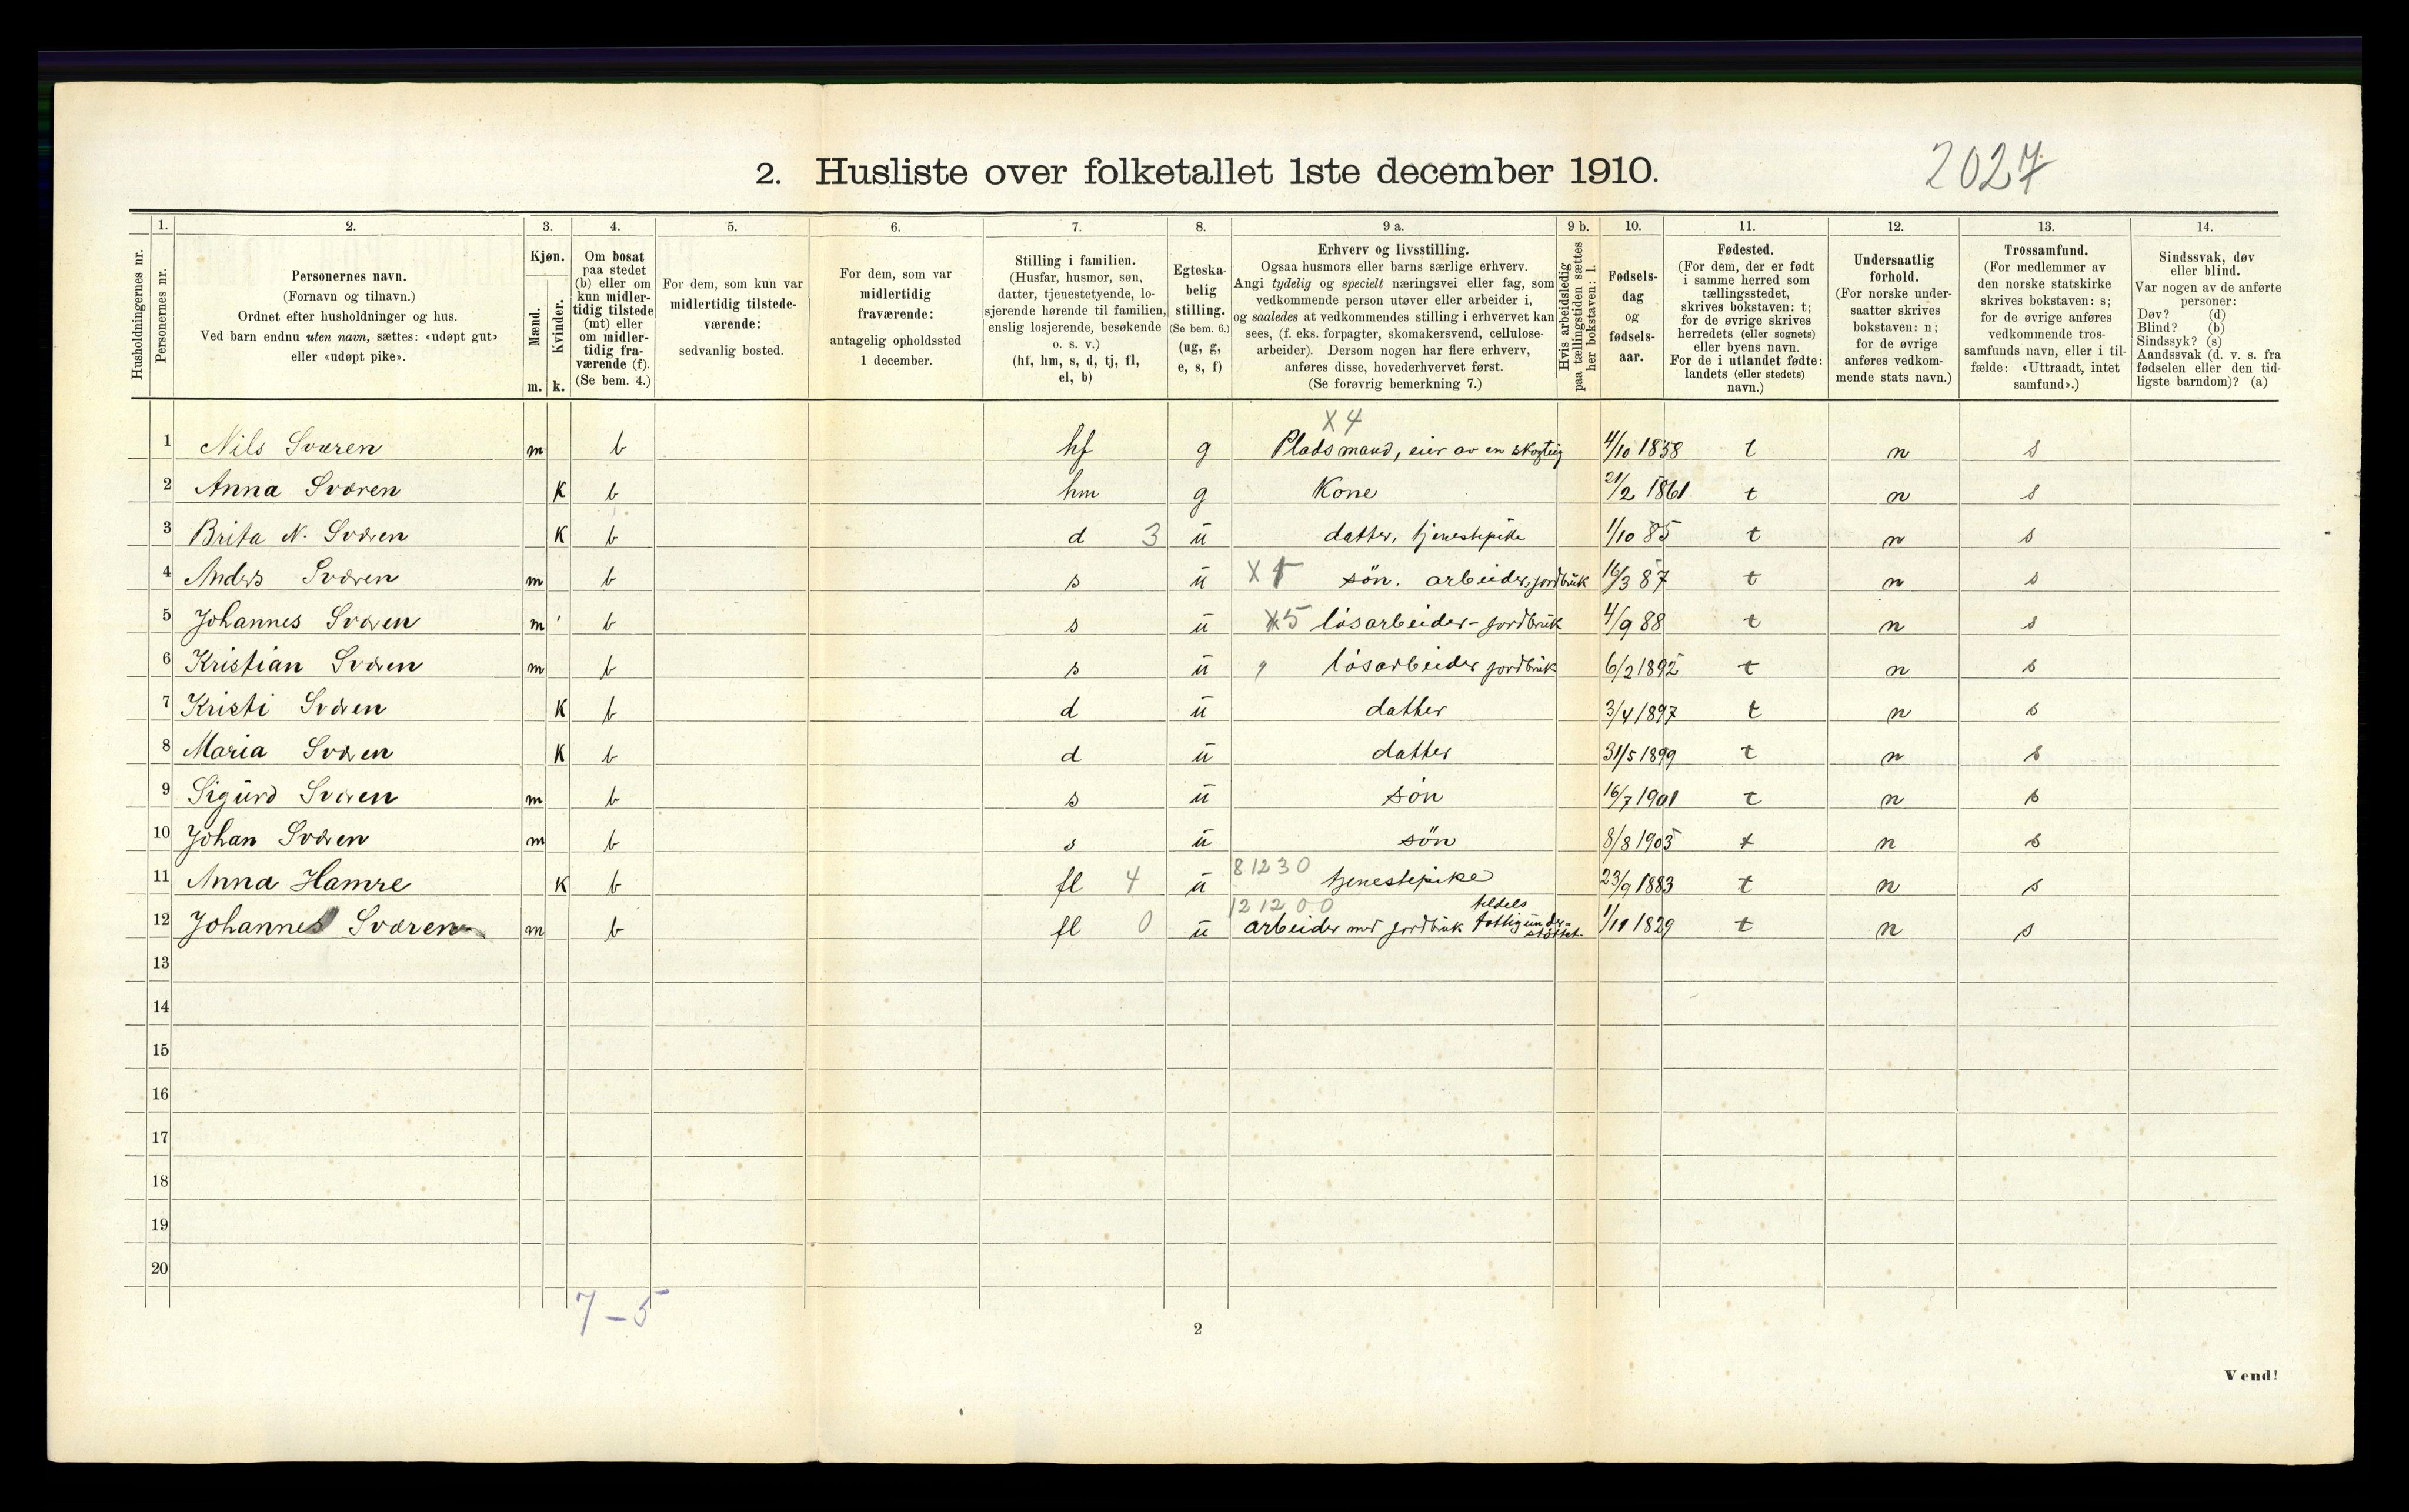 2. Husliste over folketallet 1ste december 1910.
2027
1. 2. 3. 4. 5. 6. 7. 8. 9 a. 9 b. 10. 11. 12. 13. 14.
Husholdningernes nr.
Personernes nr.
Personernes navn.
(Fornavn og tilnavn.)
Ordnet efter husholdninger og hus.
Ved barn endnu uten navn, sættes: «udøpt gut»
eller «udøpt pike».
Kjøn.
Mænd.
Kvinder.
m. k.
Om bosat
paa stedet
(b) eller om
kun midler-
tidig tilstede
(mt) eller
om midler-
tidig fra-
værende (f).
(Se bem. 4.)
For dem, som kun var
midlertidig tilstede-
værende:
sedvanlig bosted.
For dem, som var
midlertidig
fraværende:
antagelig opholdssted
1 december.
Stilling i familien.
(Husfar, husmor, søn,
datter, tjenestetyende, lo-
sjerende hørende til familien,
enslig losjerende, besøkende
o. s. v.)
(hf, hm, s, d, tj, fl,
el, b)
Egteska-
belig
stilling.
(Se bem. 6.)
(ug, g,
e, s, f)
Erhverv og livsstilling.
Ogsaa husmors eller barns særlige erhverv.
Angi tydelig og specielt næringsvei eller fag, som
vedkommende person utøver eller arbeider i,
og saaledes at vedkommendes stilling i erhvervet kan
sees, (f. eks. forpagter, skomakersvend, cellulose-
arbeider). Dersom nogen har flere erhverv,
anføres disse, hovederhvervet først.
(Se forøvrig bemerkning 7.)
Hvis arbeidsledig
paa tællingstiden sættes
her bokstaven: l.
Fødsels-
dag
og
fødsels-
aar.
Fødested.
(For dem, der er født
i samme herred som
tællingsstedet,
skrives bokstaven: t;
for de øvrige skrives
herredets (eller sognets)
eller byens navn.
For de i utlandet fødte:
landets (eller stedets)
navn.)
Undersaatlig
forhold.
(For norske under-
saatter skrives
bokstaven: n;
for de øvrige
anføres vedkom-
mende stats navn.)
Trossamfund.
(For medlemmer av
den norske statskirke
skrives bokstaven: s;
for de øvrige anføres
vedkommende tros-
samfunds navn, eller i til-
fælde: «Uttraadt, intet
samfund».)
Sindssvak, døv
eller blind.
Var nogen av de anførte
personer:
Døv? (d)
Blind? (b)
Sindssyk? (s)
Aandssvak (d. v. s. fra
fødselen eller den tid-
ligste barndom)? (a)
X 4
1 Nils Sværen m b hf g Pladsmand, eier av en skogteig 4/10 1858 t n s
2 Anna Sværen K b hm g Kone 21/2 1861 t n s
3 Brita N. Sværen K b d 3 ü datter, tjenestepike 1/10 85 t n s
4 Anders Sværen m b s ü X sön. arbeider, jordbrük 16/3 87 t n s
5 Johannes Sværen m b s ü X5 lösarbeider - jordbrük 4/9 88 t n s
6 Kristian Sværen m b s ü lösarbeider jordbrük 6/2 1892 t n s
7 Kristi Sværen K b d ü datter 3/4 1897 t n s
8 Maria Sværen K b d ü datter 31/5 1899 t n s
9 Sigürd Sværen m b s ü sön 16/7 1901 t n s
10 Johan Sværen m b s ü sön 8/8 1905 t n s
81230
11 Anna Hamre K b fl 4 ü tjenestepike 23/9 1883 t n s
121200 tildels
12 Johannes Sværen m b fl 0 ü arbeider med jordbrük fattigünder- 1/11 1829 t n s
støttet
13
14
15
16
17
18
19
20
7-5
2
Vend!